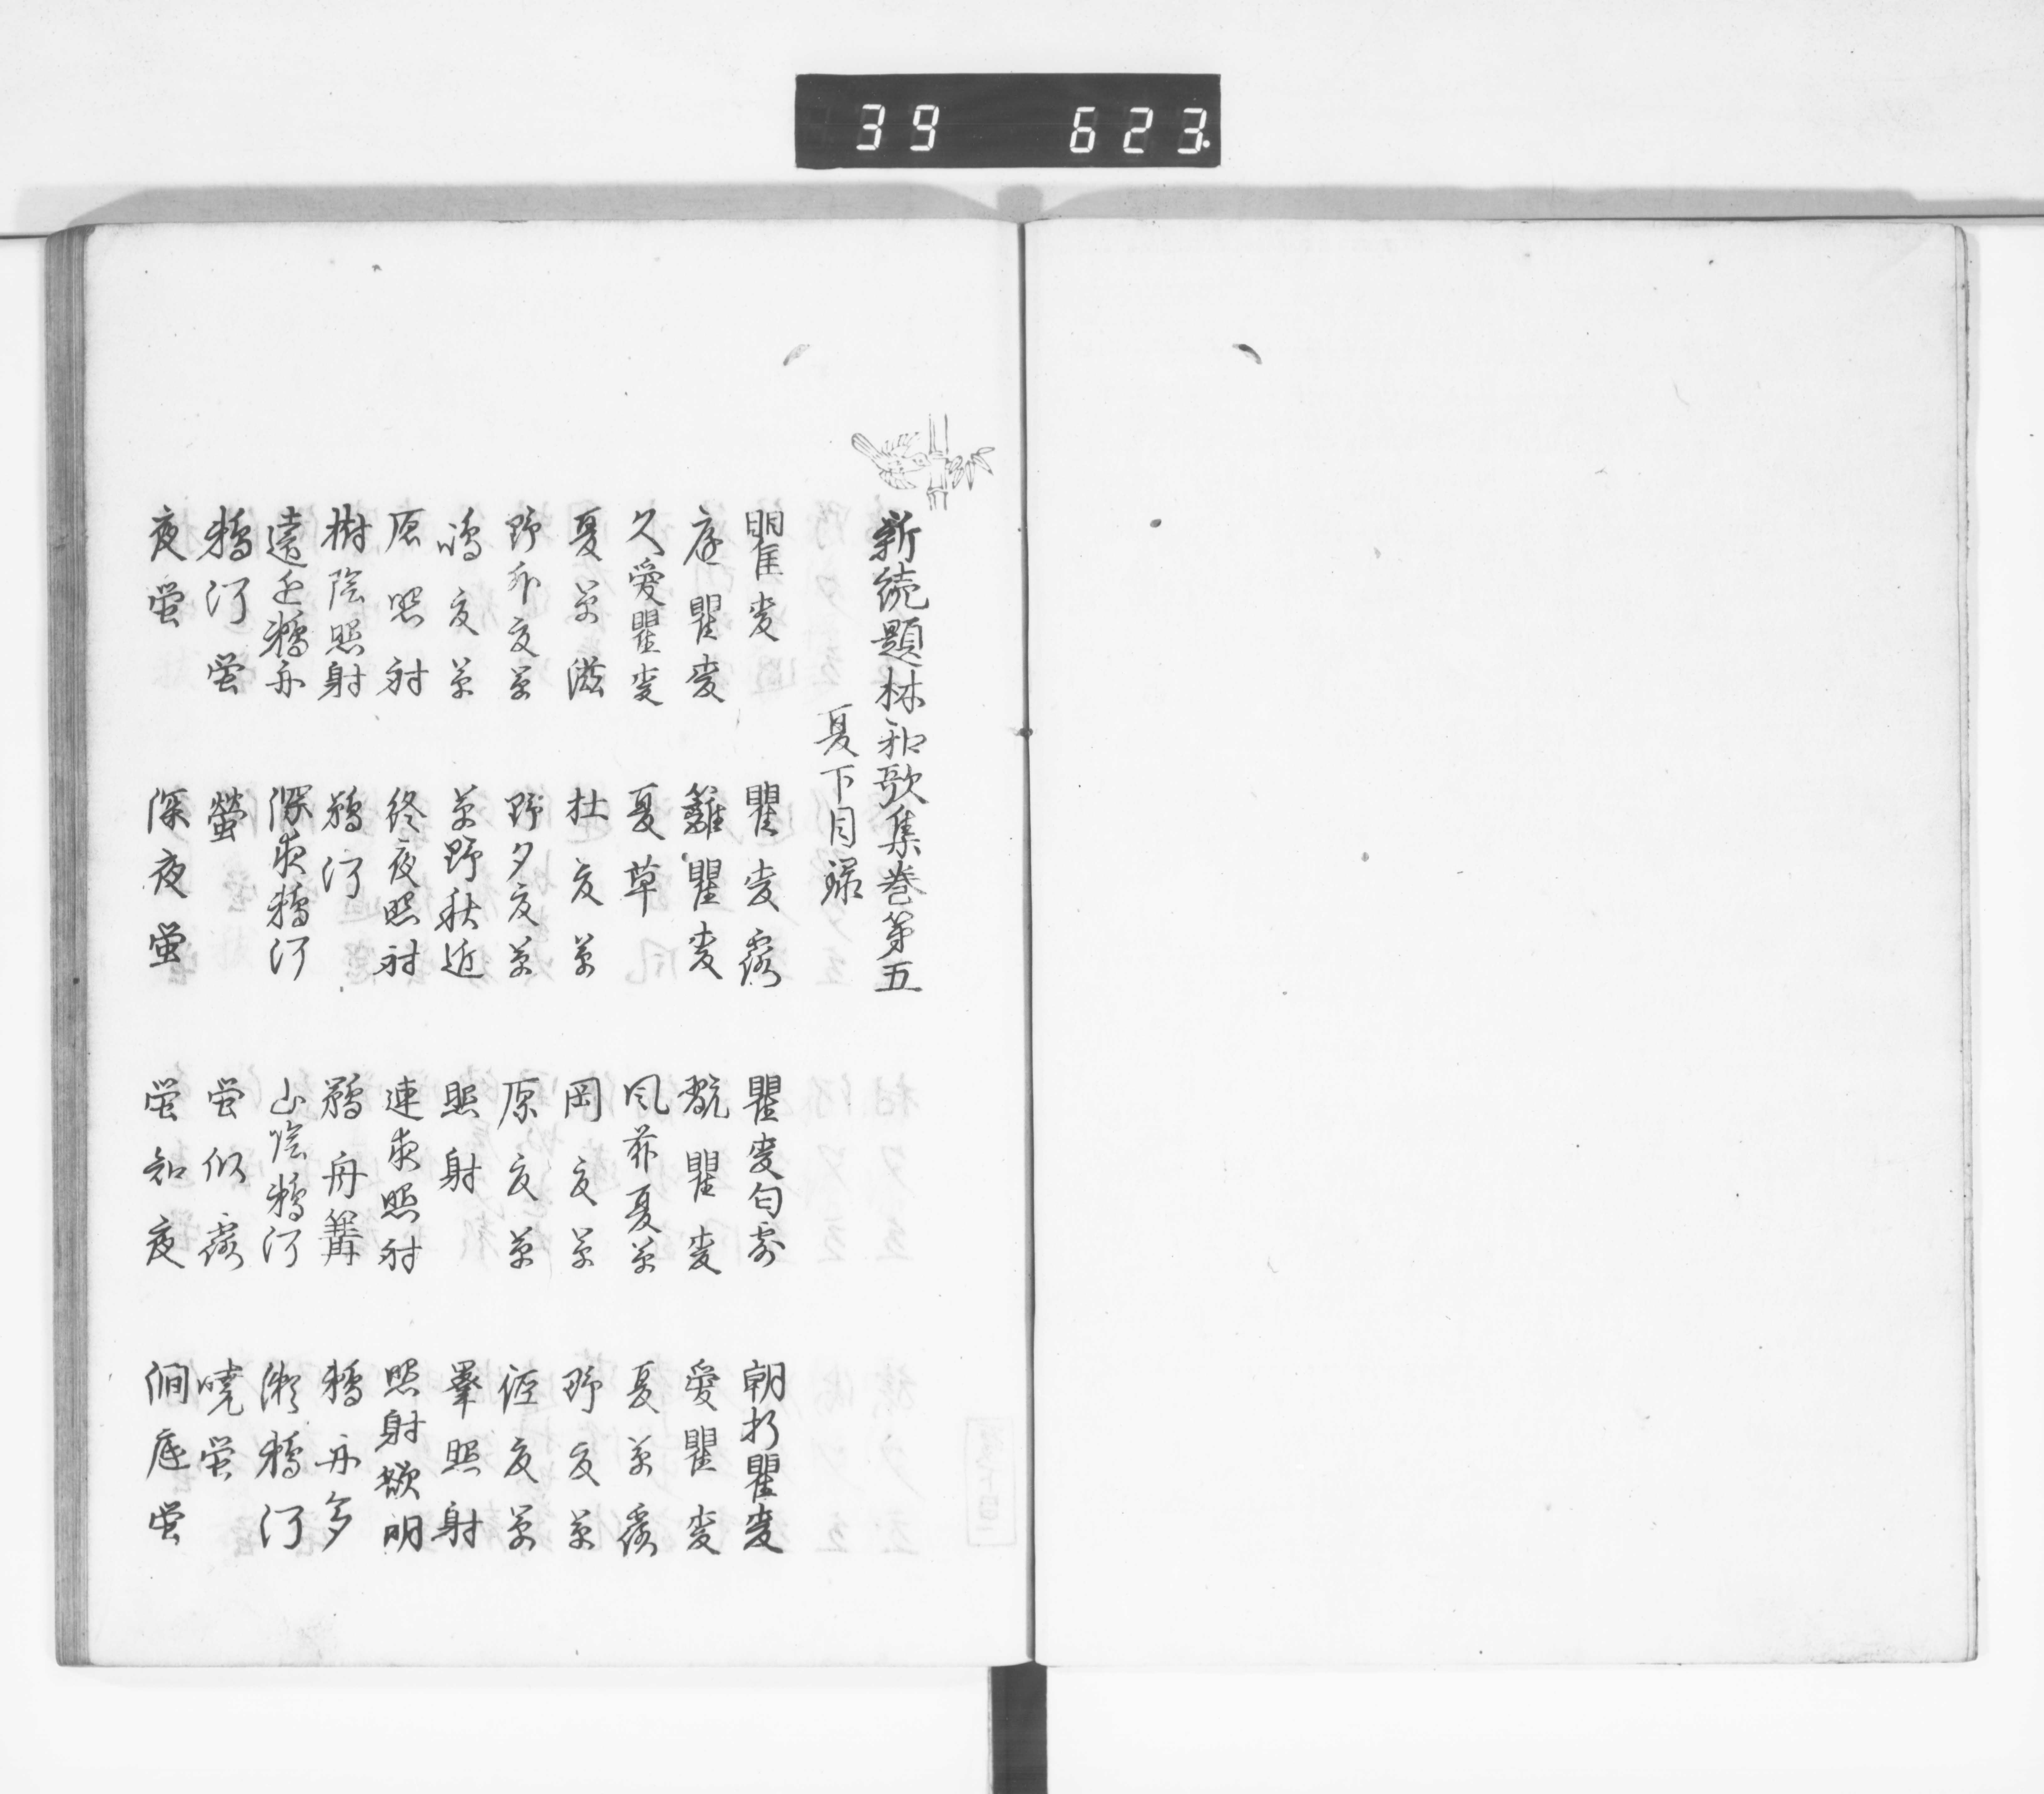 39 623
新続題林和歌集巻第五
夏下目録
瞿麦 瞿麦露 瞿麦匂露 朝折瞿麦
庭瞿麦 籬瞿麦 翫瞿麦 愛瞿麦
久愛瞿麦 夏草 風前夏草 夏草露
夏草滋 杜夏草 岡夏草 野夏草
野外夏草 野夕夏草 原夏草 径夏草
嶋夏草 草野秋近 照射 峯照射
原照射 終夜照射 連夜照射 照射欲明
樹陰照射 鵜河 鵜舟篝 鵜舟多
遠近鵜舟 深夜鵜河 山陰鵜河 瀬鵜河
鵜河蛍 螢 蛍似露 暁蛍
夜蛍 深夜蛍 蛍知夜 澗底蛍